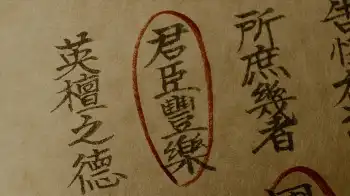 所庶幾者
君臣豐樂
英檀之德